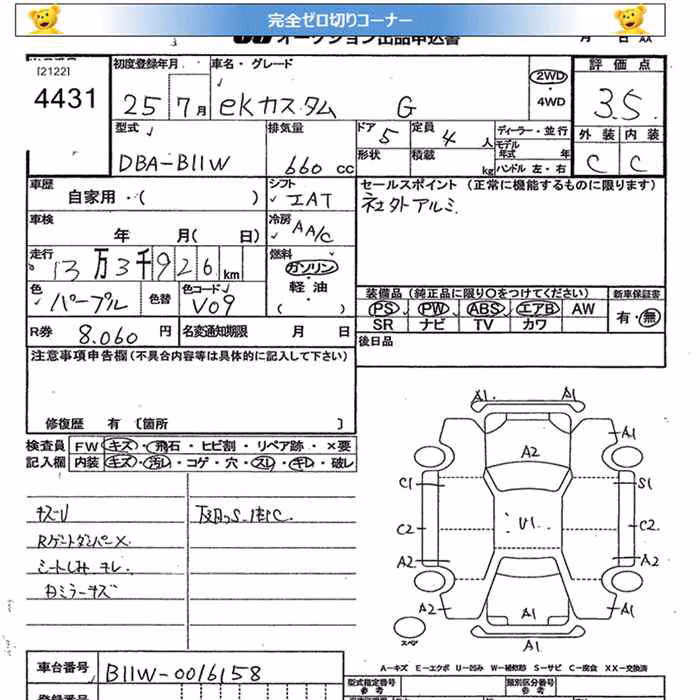 完全ゼロ切りコーナー
オークション出品申込書
[2122]
4431
初度登録年月
25 7月
車名・グレード
eKカスタム G
2WD
・
4WD
評価点
3.5
外装 内装
C C
型式
DBA-B11W
排気量
660 CC
ドア 5
形状
定員 4 人
積載 kg
ディーラー・並行
モデル年式 年
ハンドル 左・右
車歴
自家用・( )
シフト
IAT
セールスポイント (正常に機能するものに限ります)
社外アルミ
車検
年 月( 日)
冷房
AA/C
走行
13万3千926km
燃料
ガソリン
・
軽油
・
( )
色
パープル
色替
色コード
V09
装備品(純正品に限り○をつけてください)
PS PW ABS エアB AW
SR ナビ TV カワ
新車保証書
有・無
R券 8.060 円
名変通知期限 月 日
後日品
注意事項申告欄(不具合内容等は具体的に記入して下さい)
修復歴 有 〔箇所 〕
検査員
記入欄
FW キズ・飛石・ヒビ割・リペア跡・×要
内装 キズ・汚レ・コゲ・穴・スレ・キレ・破レ
キズU
Rゲートダンパー×
シートしみ キレ.
Dミラーキズ
A1 A1
A1
A2
C1 S1
C2 U1 C2
A2 A2
A2 A1 A1
A1
スペア
A-キズ E-エクボ U-凹み W-補修跡 S-サビ C-腐食 XX-交換済
車台番号 B11W-0016158
型式指定番号
参考
類別区分番号
参考
登録番号